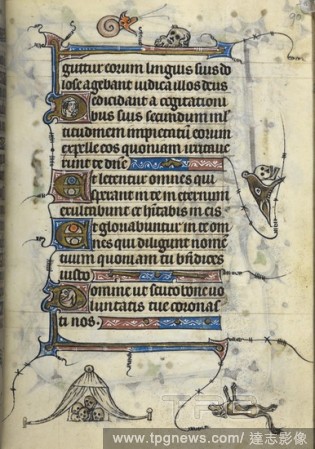 90
guttur eorum linguis suis do
lose agebant iudica illos deus
Decidant a cogitationi
bus suis secundum mul
titudinem impietatum eorum
expelle eos quoniam irritaue
runt te dne
Et letentur omnes qui
sperant in te in eternum
exultabunt et hitabis in eis
Et gloriabuntur in te om
nes qui diligunt nome
tuum quoniam tu bndices
iusto
Domine ut scuto bone uo
luntatis tue coronas
ti nos.
TPG
www.tpgnews.com / 達志影像